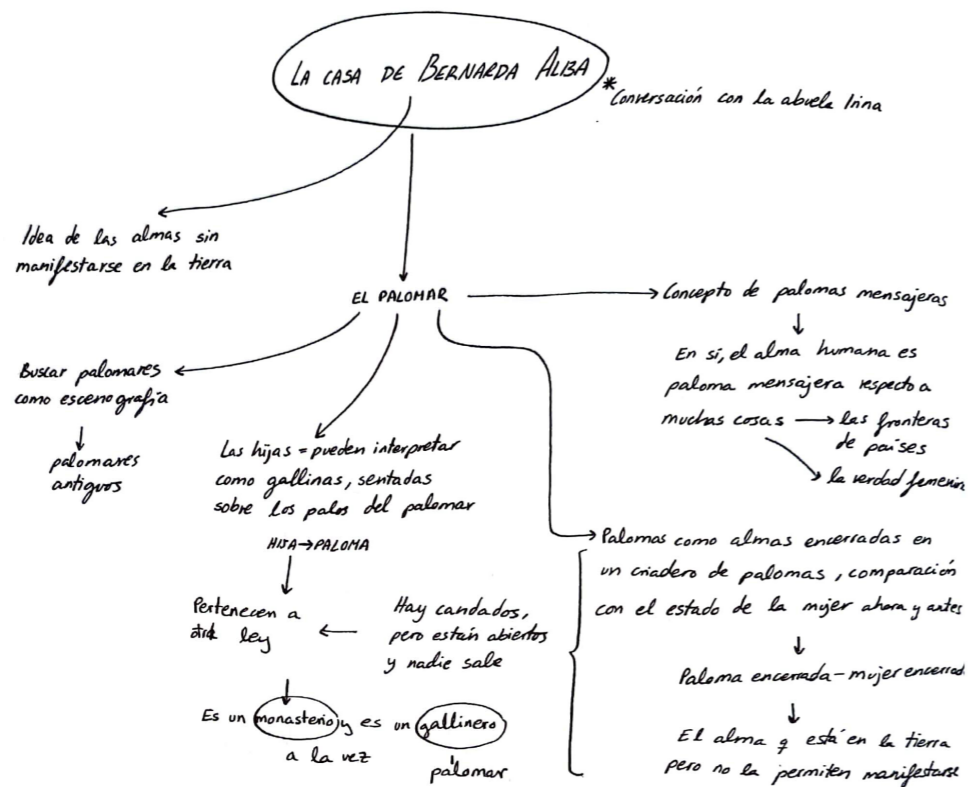 LA CASA DE BERNARDA ALBA
*Conversación con la abuela Irina
Idea de las almas sin
manifestarse en la tierra
EL PALOMAR
Concepto de palomas mensajeras
En sí, el alma humana es
paloma mensajera respecto a
muchas cosas → las fronteras
de países
la verdad femenin
Buscar palomares
como escenografía
palomares
antiguos
Las hijas = pueden interpretar
como gallinas, sentadas
sobre los palos del palomar
HIJA→PALOMA
Pertenecen a
ley
Hay candados,
pero están abiertos
y nadie sale
Es un monasterio y es un gallinero
a la vez
palomar
Palomas como almas encerradas en
un criadero de palomas, comparación
con el estado de la mujer ahora y antes
Paloma encerrada - mujer encerrad
El alma q está en la tierra
pero no la permiten manifestarse